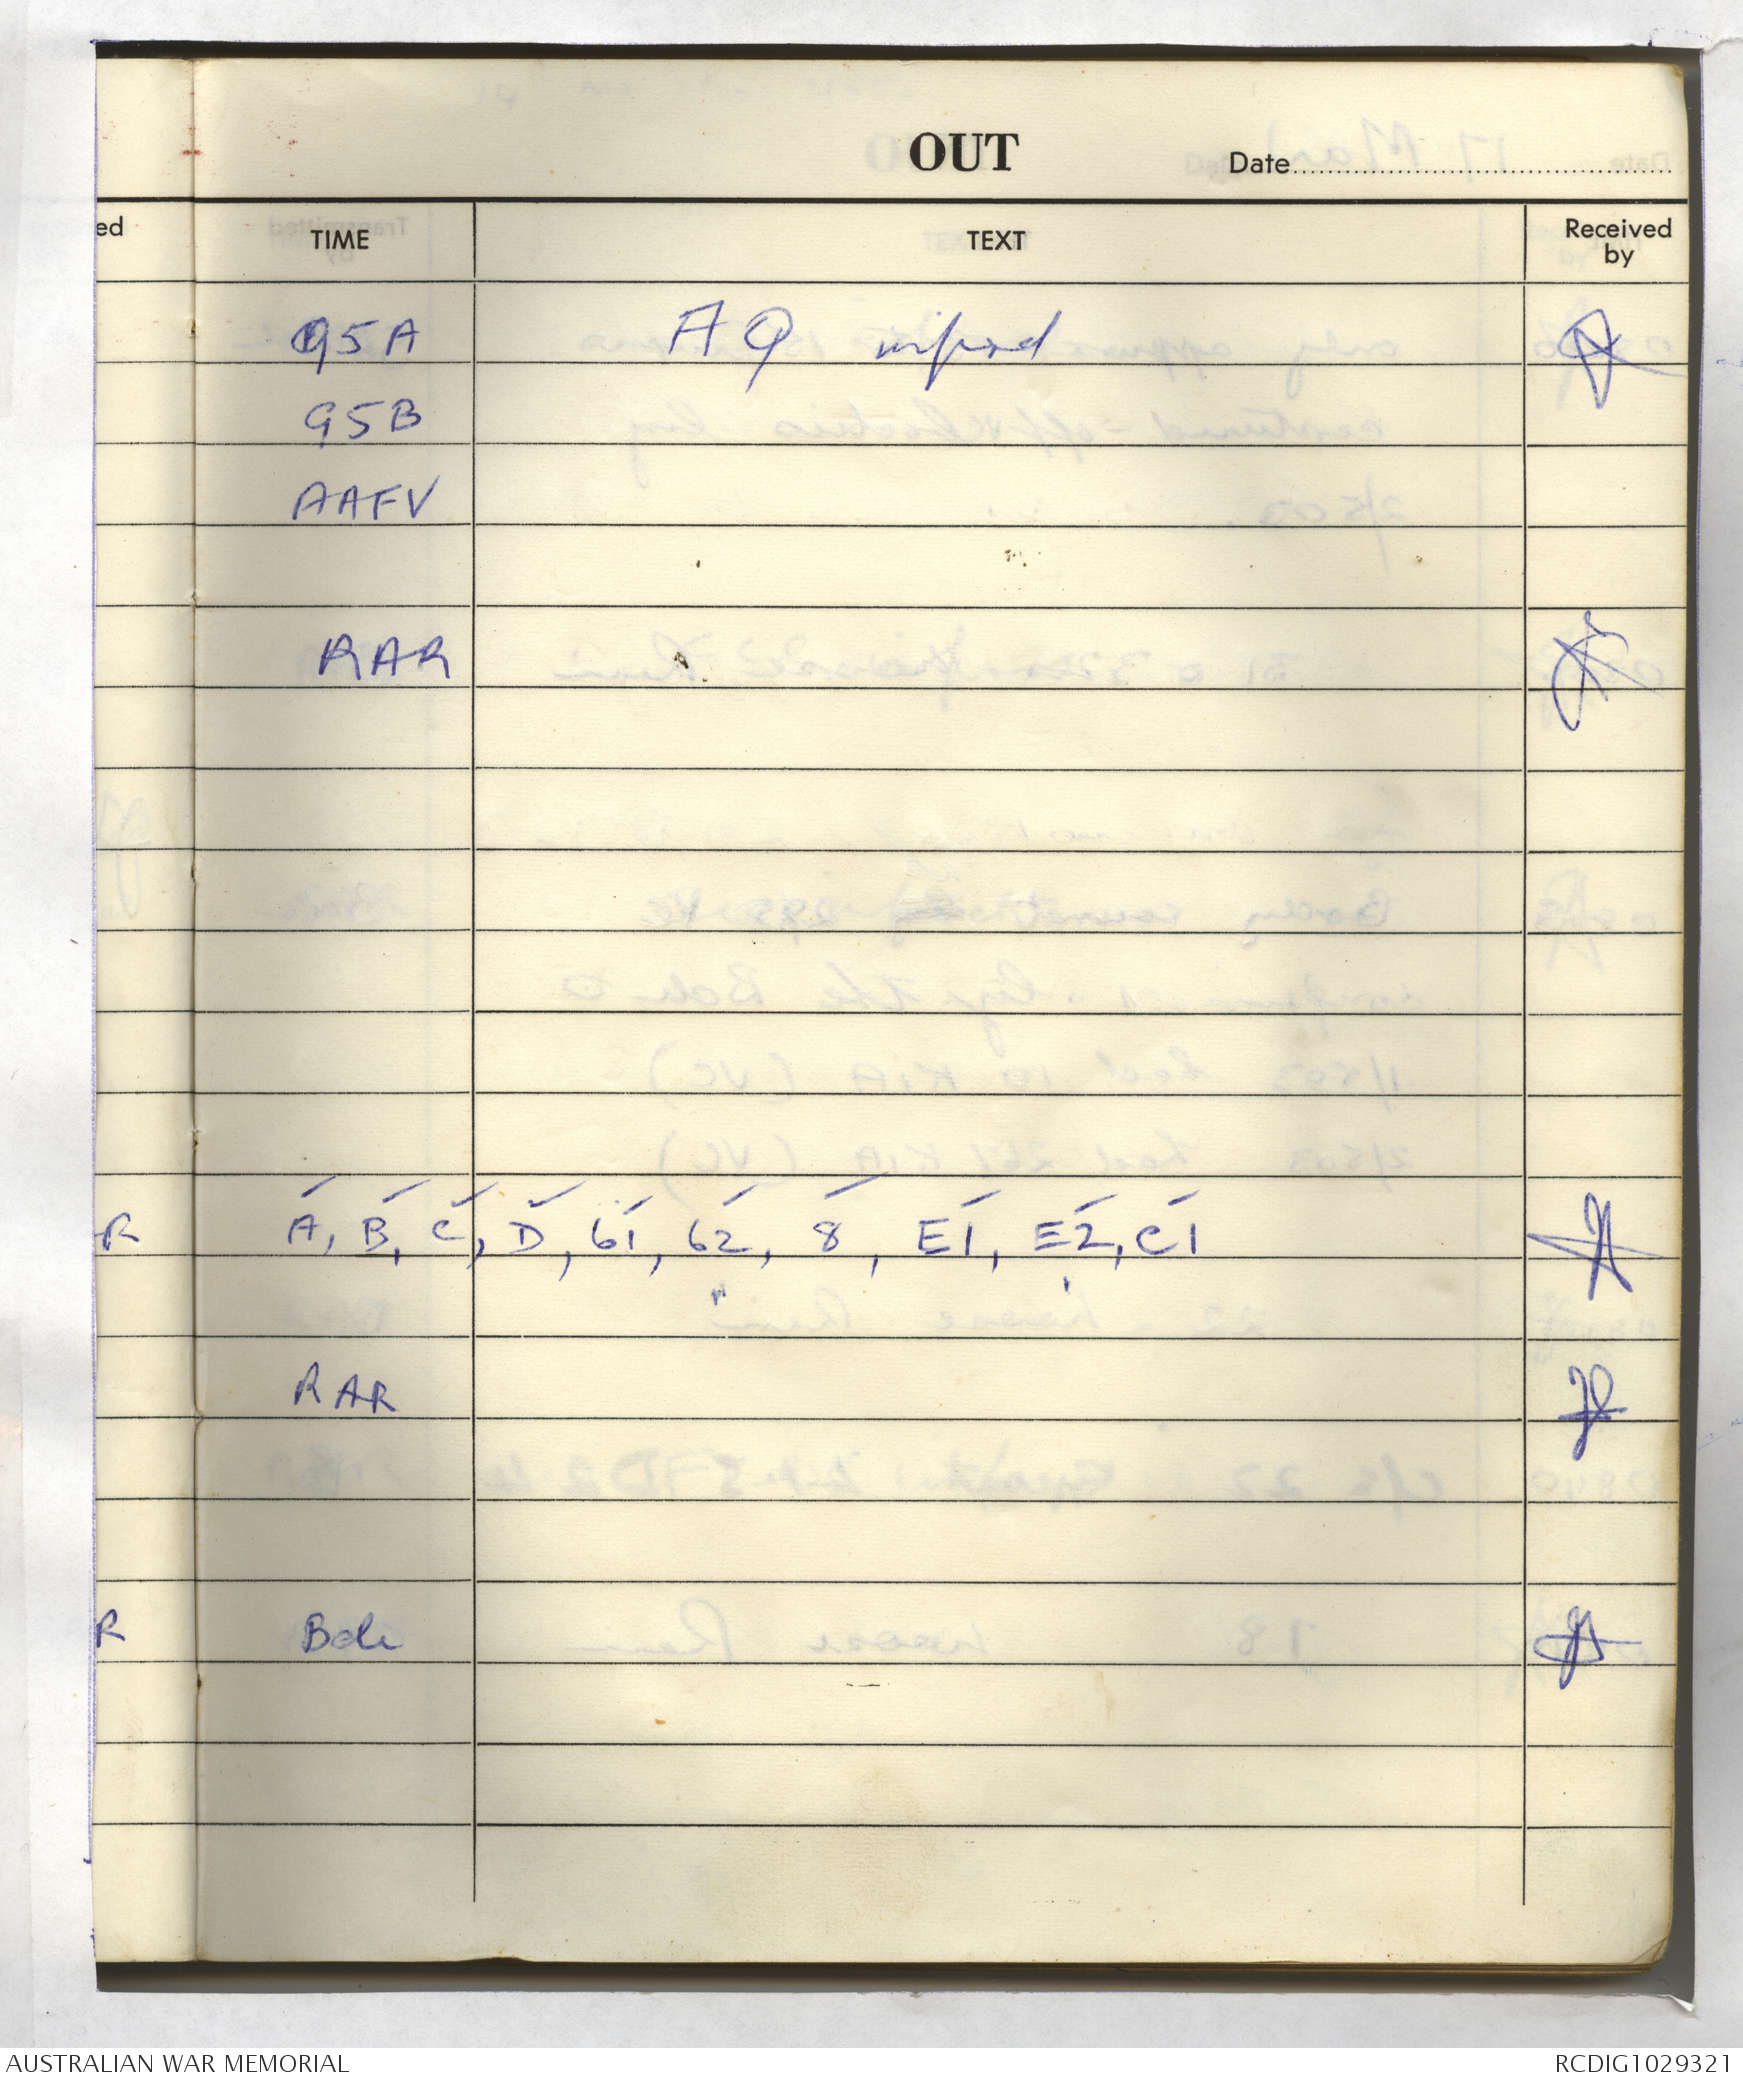 OUT
Date
ed TIME TEXT Received by
95A AQ informed
95B
AAFV
RAR
R A, B, C, D, 61, 62, 8, E1, E2, C1
RAR
R Bde
AUSTRALIAN WAR MEMORIAL RCDIG1029321